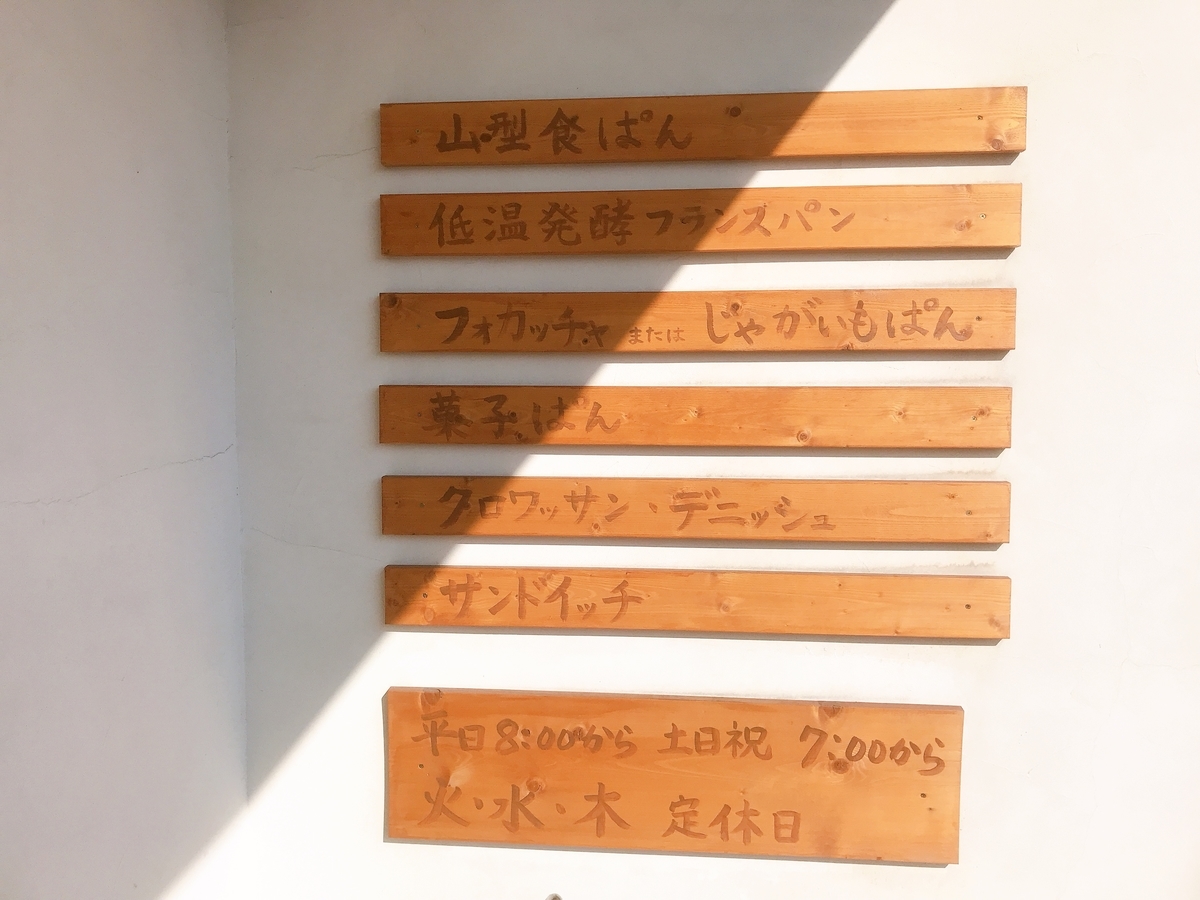 山型食ぱん
低温発酵フランスパン
フォカッチャ または じゃがいもぱん
菓子ぱん
クロワッサン・デニッシュ
サンドイッチ
平日8:00から 土日祝 7:00から
火・水・木 定休日